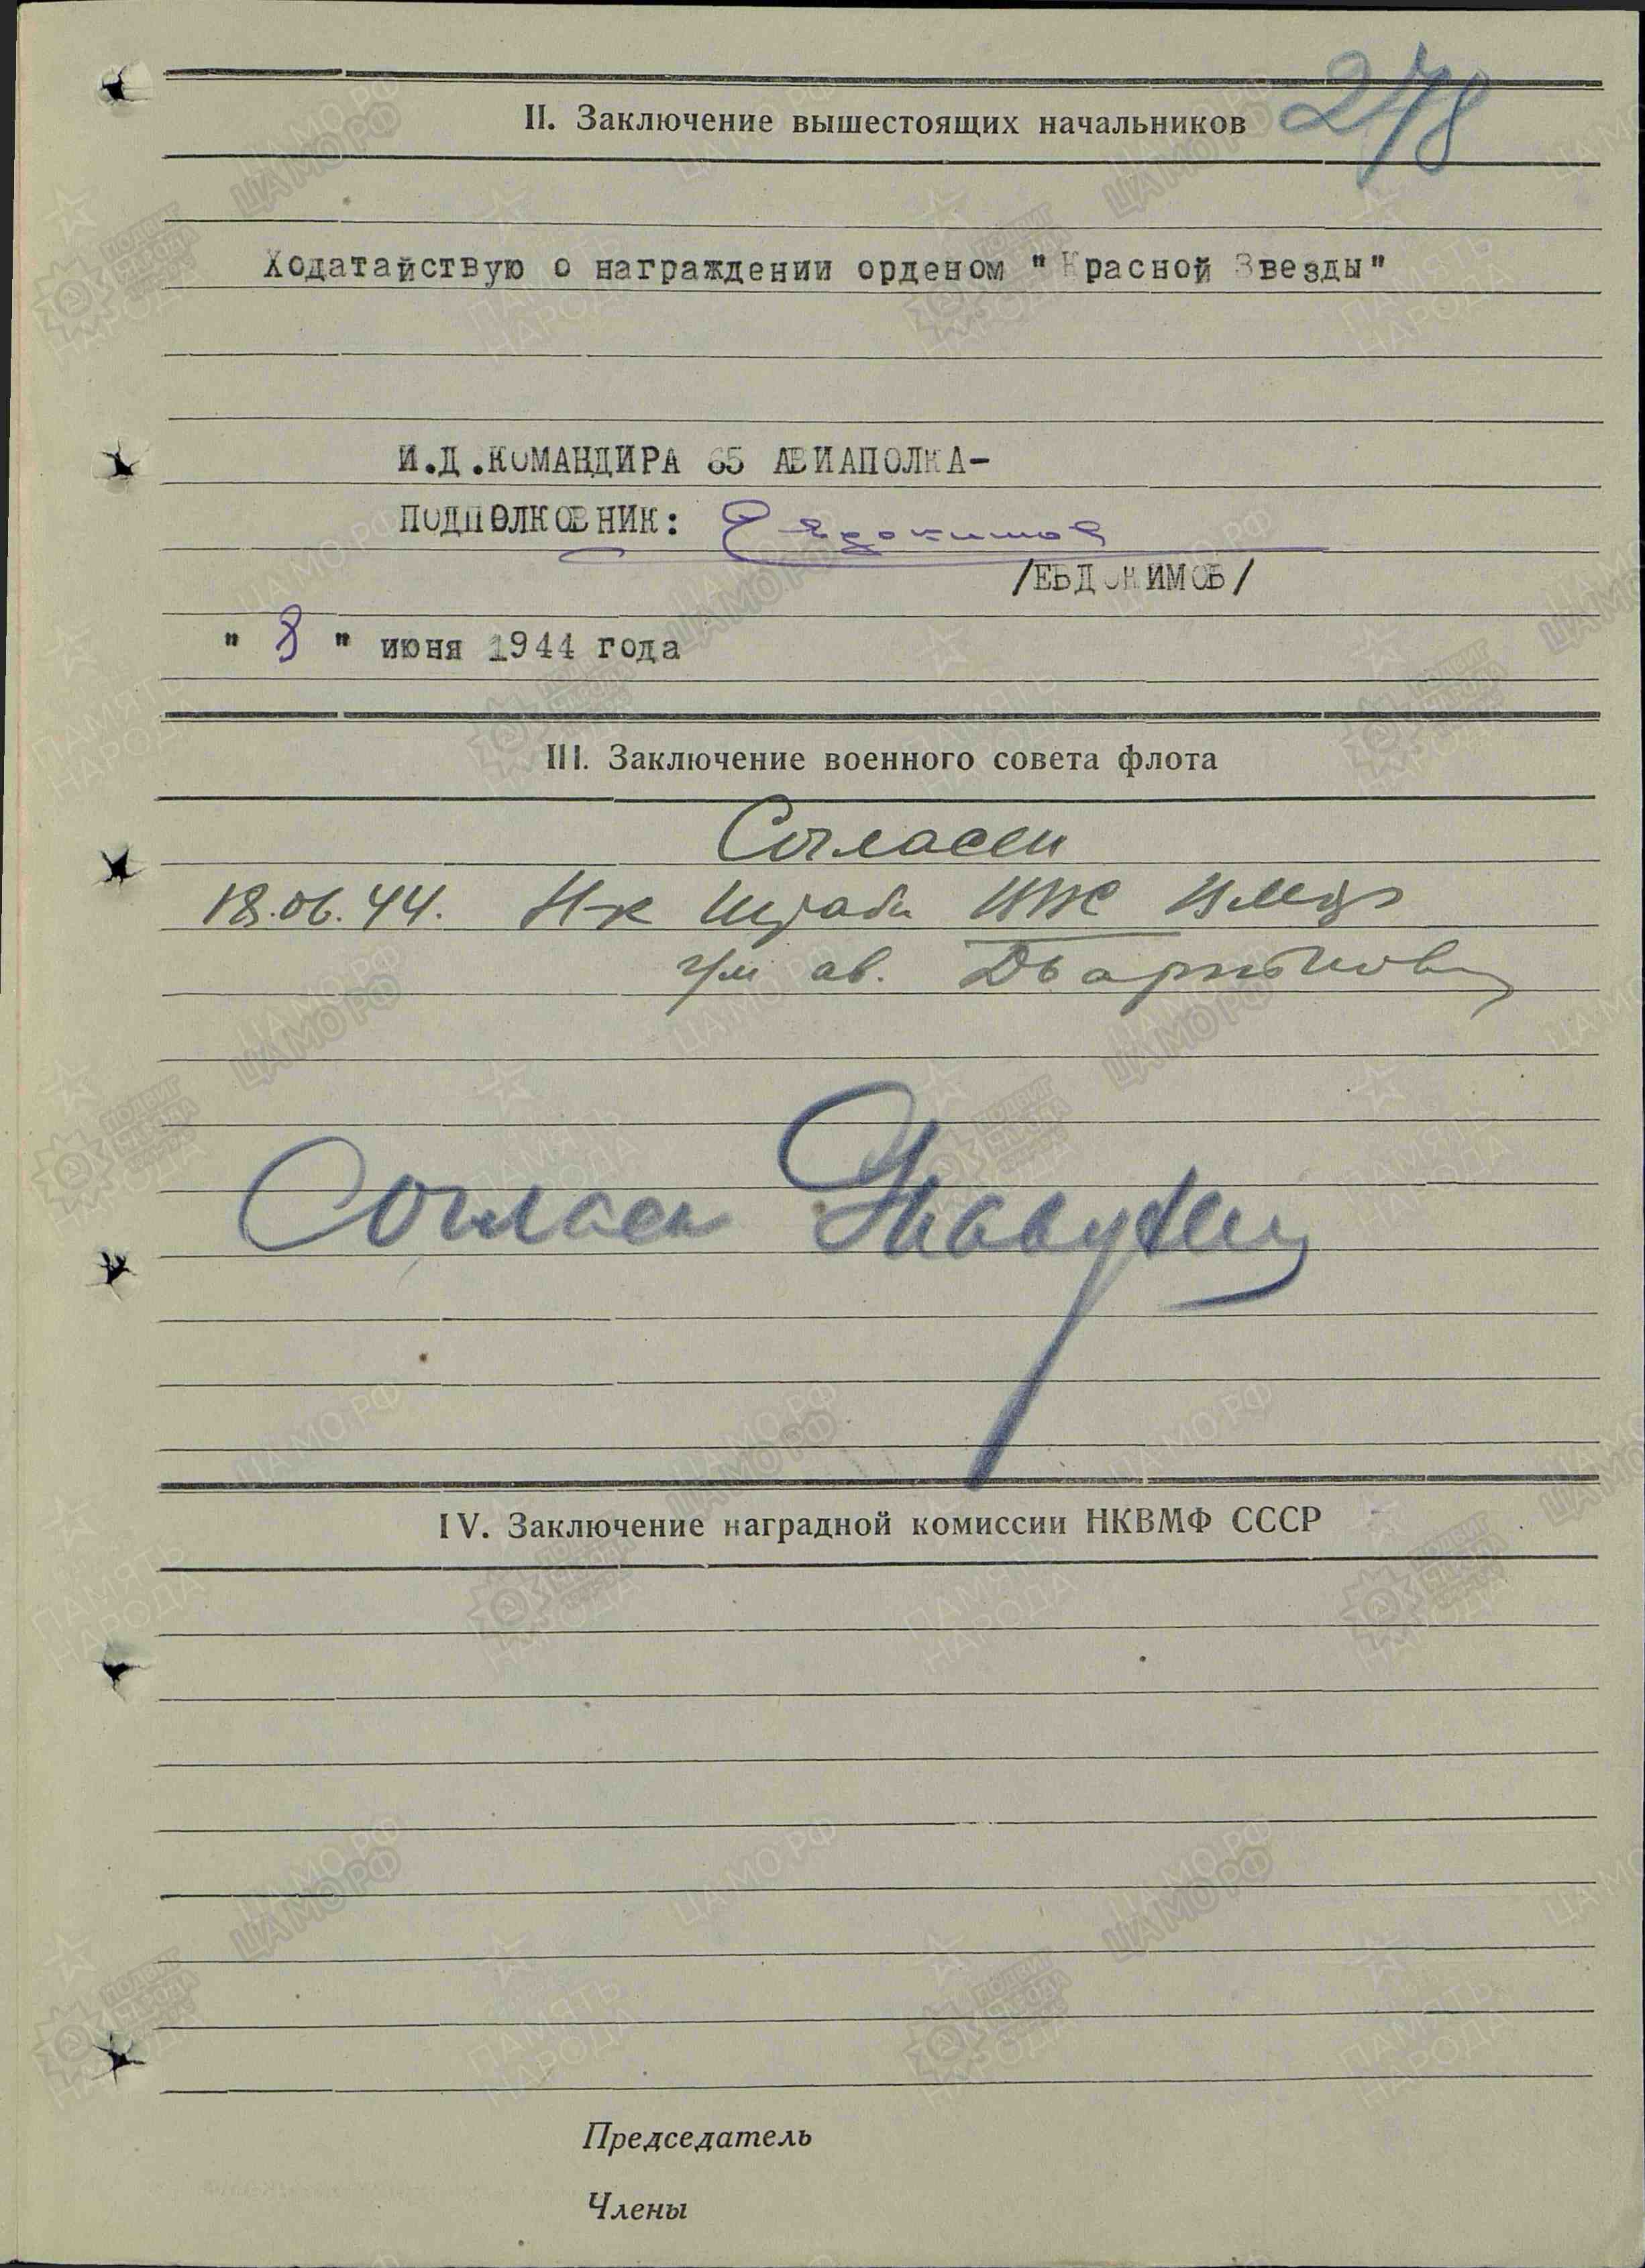 278
II. Заключение вышестоящих начальников
Ходатайствую о награждении орденом "Красной Звезды"
И.Д.КОМАНДИРА 65 АВИАПОЛКА-
ПОДПОЛКОВНИК: Евдокимов
/ЕВДОКИМОВ/
" 8 " июня 1944 года
III. Заключение военного совета флота
Согласен
18.06.44. Н-к Штаба ВВС ВМФ
г/м ав.
Согласен
IV. Заключение наградной комиссии НКВМФ СССР
Председатель
Члены